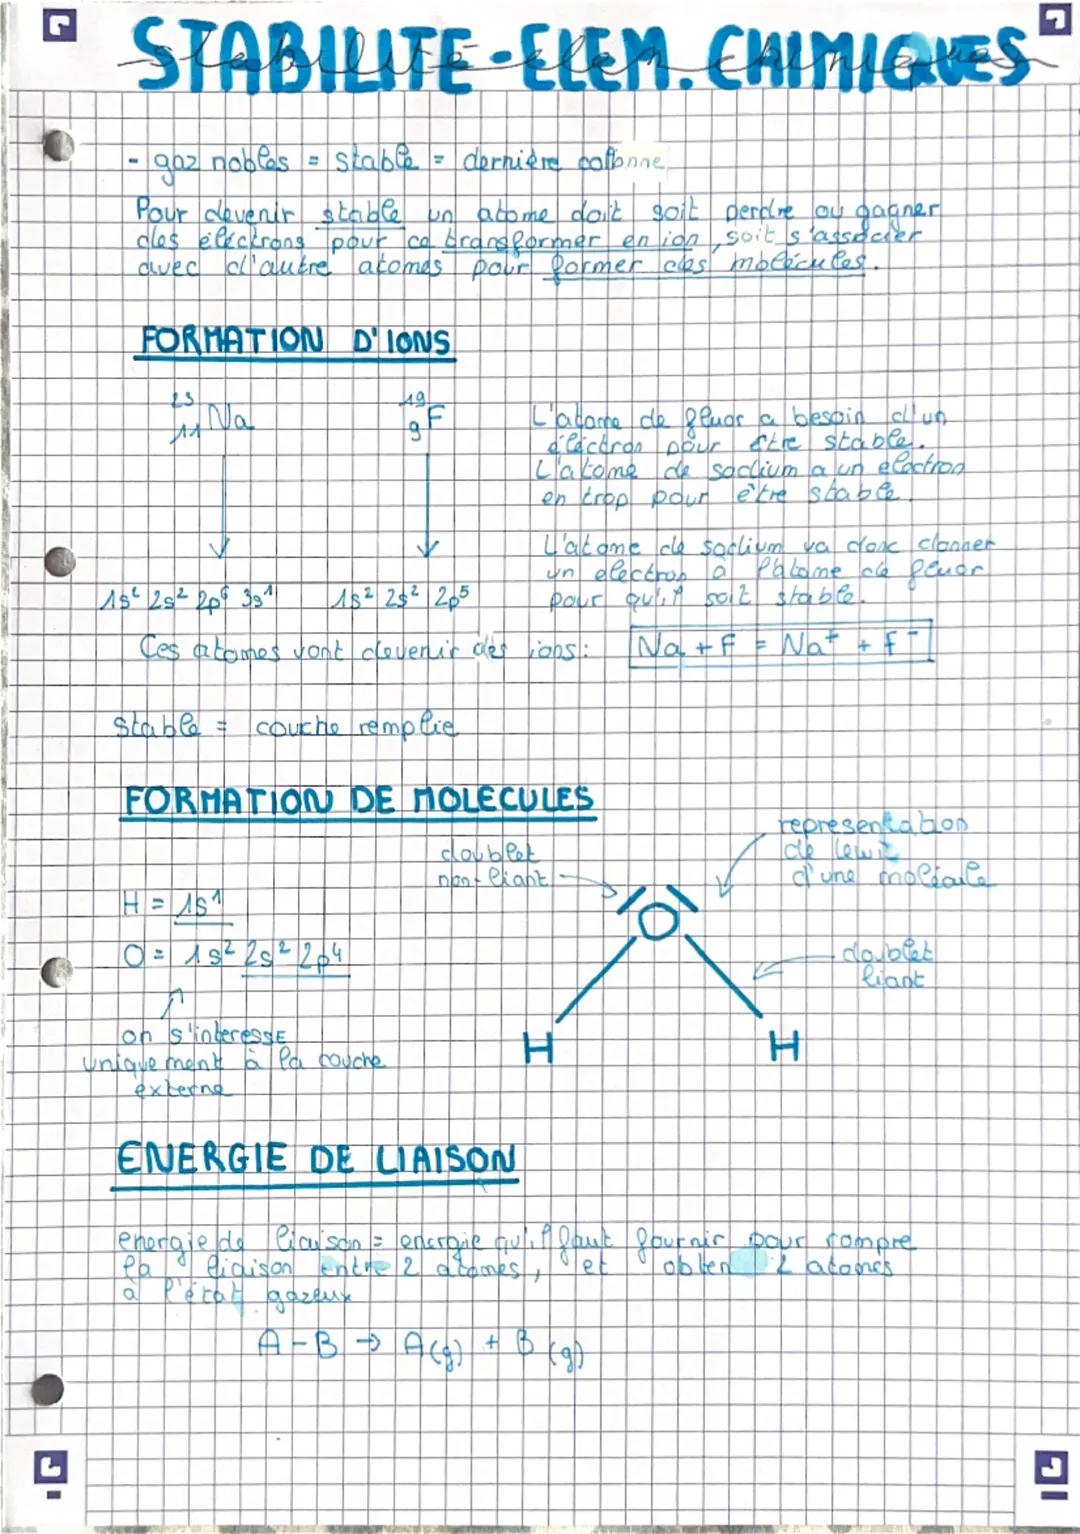 STABILITÉ - ELEM. CHIMIQUES
- gaz nobles = stable = dernière colonne
Pour devenir stable un atome doit soit perdre ou gagner
des électrons pour ce transformer en ion, soit s'associer
avec d'autre atomes pour former des molécules.
FORMATION D'IONS
23
11 Na
19
9 F
L'atome de fluor a besoin d'un
électron pour être stable.
L'atome de sodium a un electron
en trop pour être stable.
L'atome de sodium va donc donner
un electron à l'atome de fluor
pour qu'il soit stable.
1s² 2s² 2p⁶ 3s¹
1s² 2s² 2p⁵
Ces atomes vont devenir des ions: Na + F = Na⁺ + F⁻
stable = couche remplie
FORMATION DE MOLECULES
representation
de lewis
d'une molécule
doublet
non-liant
H = 1s¹
O = 1s² 2s² 2p⁴
O
doublet
liant
on s'interesse
uniquement à la couche
externe
H H
ENERGIE DE LIAISON
energie de liaison = energie qu'il faut fournir pour rompre
la liaison entre 2 atomes, et obten 2 atomes
à l'état gazeux
A-B → A(g) + B(g)